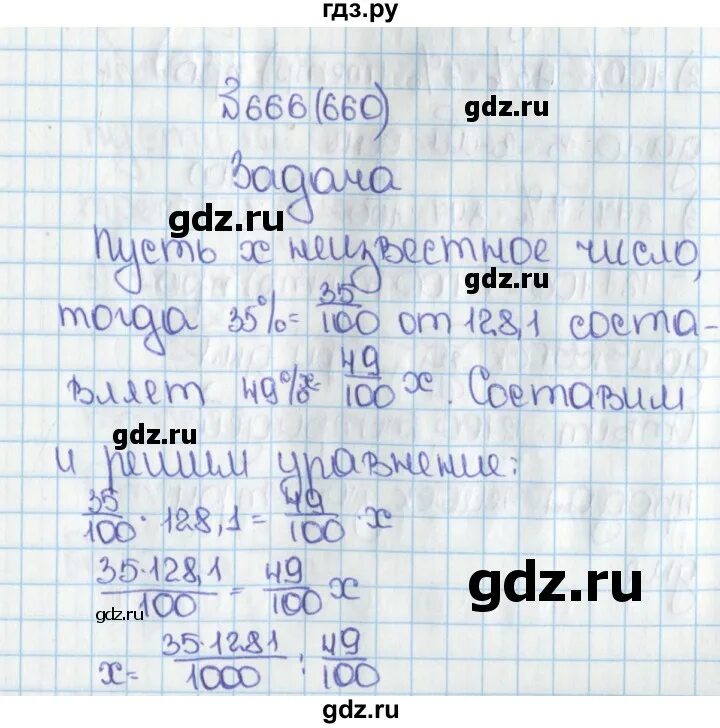 гдз.ру
№666(660)
gdz.ru
Задача
gdz.ru
Пусть x неизвестное число,
gdz.ru
тогда 35% = 35/100 от 128,1 соста-
вляет 49%x = 49/100 x. Составим
gdz.ru
и решим уравнение:
35/100 · 128,1 = 49/100 · x
35·128,1/100 = 49/100 x
gdz.ru
gdz.ru
x = 35·1281/1000 : 49/100
gdz.ru